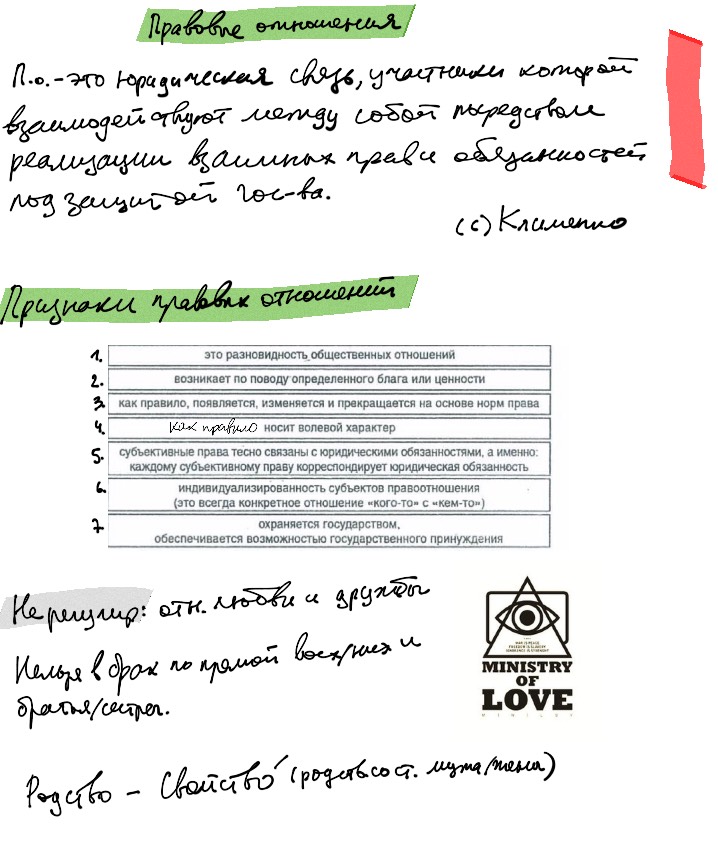 Правовые отношения
П.о. - это юридическая связь, участники которой
взаимодействуют между собой посредством
реализации взаимных прав и обязанностей
под защитой гос-ва.
(с) Клименко
Признаки правовых отношений
1. это разновидность общественных отношений
2. возникает по поводу определенного блага или ценности
3. как правило, появляется, изменяется и прекращается на основе норм права
4. как правило носит волевой характер
5. субъективные права тесно связаны с юридическими обязанностями, а именно:
каждому субъективному праву корреспондирует юридическая обязанность
6. индивидуализированность субъектов правоотношения
(это всегда конкретное отношение «кого-то» с «кем-то»)
7. охраняется государством,
обеспечивается возможностью государственного принуждения
Не регулир: отн. любви и дружбы
Нельзя в брак по прямой восх/нисх и
братья/сестры.
WAR IS PEACE
FREEDOM IS SLAVERY
IGNORANCE IS STRENGTH
MINISTRY
OF
LOVE
MINILUV
Родство - Свойство (родств со ст. мужа/жены)